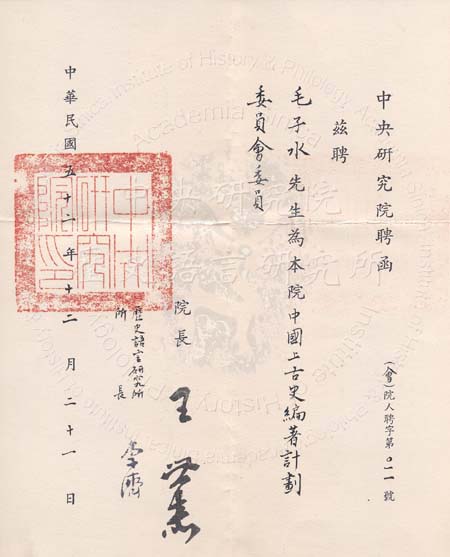 中央研究院聘函
(會)院人聘字第〇一一號
茲聘
毛子水先生為本院中國上古史編著計劃
委員會委員
院長 王世杰
歷史語言研究所
所長 李濟
中華民國五十二年十二月二十一日
中央研究院印
中央研究院
語言研究所
Institute of History & Philology
Academia Sinica